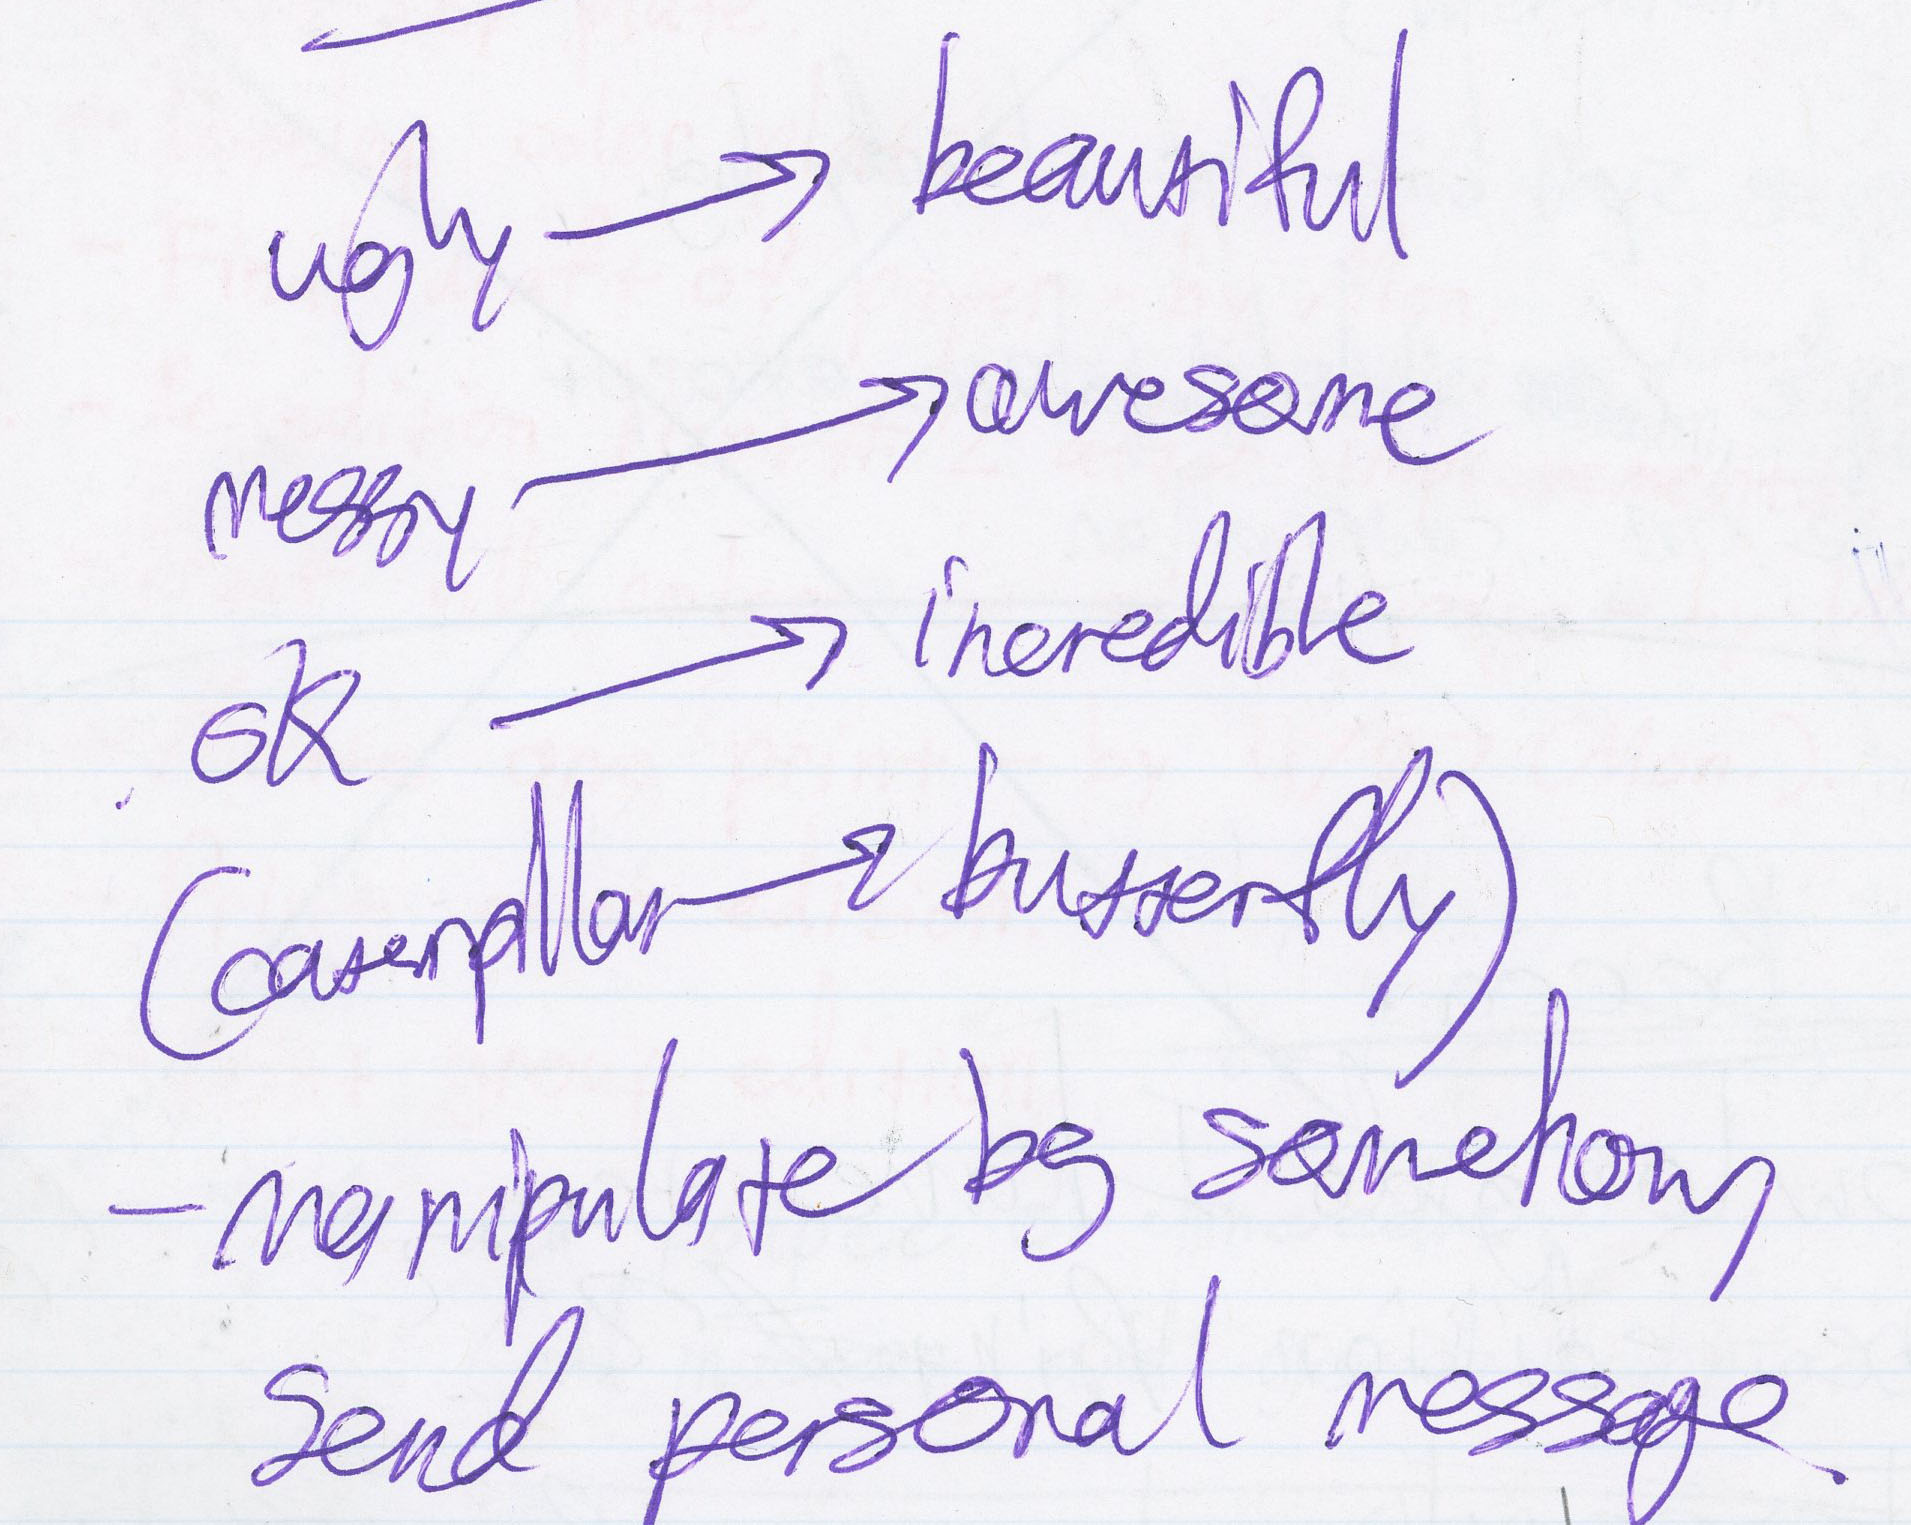 ugly → beautiful
messy → awesome
ok → incredible
(caterpillar → butterfly)
- manipulate bg somehow,
send personal message.